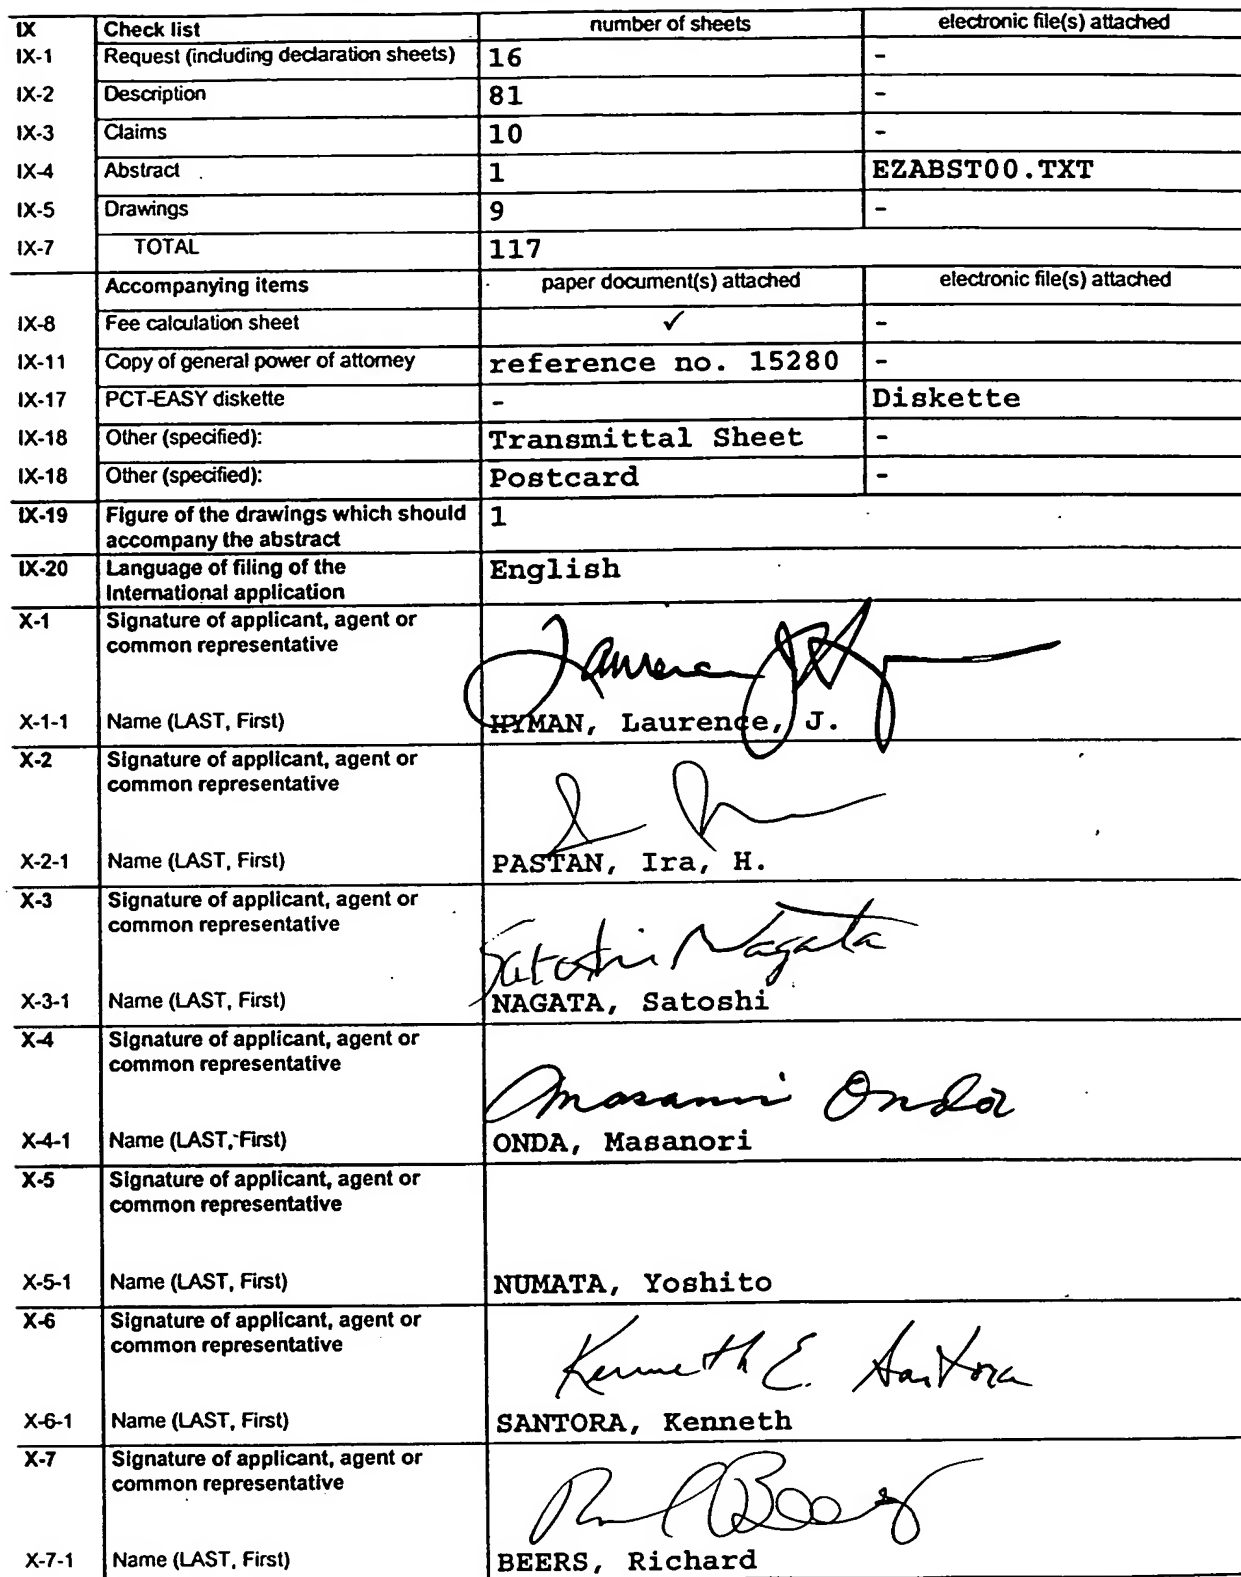 IX Check list number of sheets electronic file(s) attached
IX-1 Request (including declaration sheets) 16 -
IX-2 Description 81 -
IX-3 Claims 10 -
IX-4 Abstract 1 EZABST00.TXT
IX-5 Drawings 9 -
IX-7 TOTAL 117
Accompanying items paper document(s) attached electronic file(s) attached
IX-8 Fee calculation sheet ✓ -
IX-11 Copy of general power of attorney reference no. 15280 -
IX-17 PCT-EASY diskette - Diskette
IX-18 Other (specified): Transmittal Sheet -
IX-18 Other (specified): Postcard -
IX-19 Figure of the drawings which should 1
accompany the abstract
IX-20 Language of filing of the English
International application
X-1 Signature of applicant, agent or
common representative
X-1-1 Name (LAST, First) HYMAN, Laurence, J.
X-2 Signature of applicant, agent or
common representative
X-2-1 Name (LAST, First) PASTAN, Ira, H.
X-3 Signature of applicant, agent or
common representative
Satoshi Nagata
X-3-1 Name (LAST, First) NAGATA, Satoshi
X-4 Signature of applicant, agent or
common representative
Masanori Onda
X-4-1 Name (LAST, First) ONDA, Masanori
X-5 Signature of applicant, agent or
common representative
X-5-1 Name (LAST, First) NUMATA, Yoshito
X-6 Signature of applicant, agent or
common representative
Kenneth E. Santora
X-6-1 Name (LAST, First) SANTORA, Kenneth
X-7 Signature of applicant, agent or
common representative
X-7-1 Name (LAST, First) BEERS, Richard